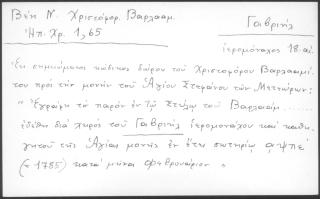 Βέη Ν. Χριστόφορ. Βαρλααμ.
Γαβριήλ
Ἠπ. Χρ. 1, 65
ἱερομόναχος 18. αἰ.
Ἐκ σημειώματος κώδικος δώρου τοῦ Χριστοφόρου Βαρλααμί-
του πρὸς τὴν μονὴν τοῦ Ἁγίου Στεφάνου τῶν Μετεώρων:
" Ἐγράφη τὸ παρὸν ἐν τῷ Στύλῳ τοῦ Βαρλαὰμ ........
ἐδέθη διὰ χειρὸς τοῦ Γαβριὴλ ἱερομονάχου καὶ καθη-
γητοῦ τῆς Ἁγίας μονῆς ἐν ἔτει σωτηρίῳ αψπε΄
(= 1785) κατὰ μῆνα φεβρουάριον "